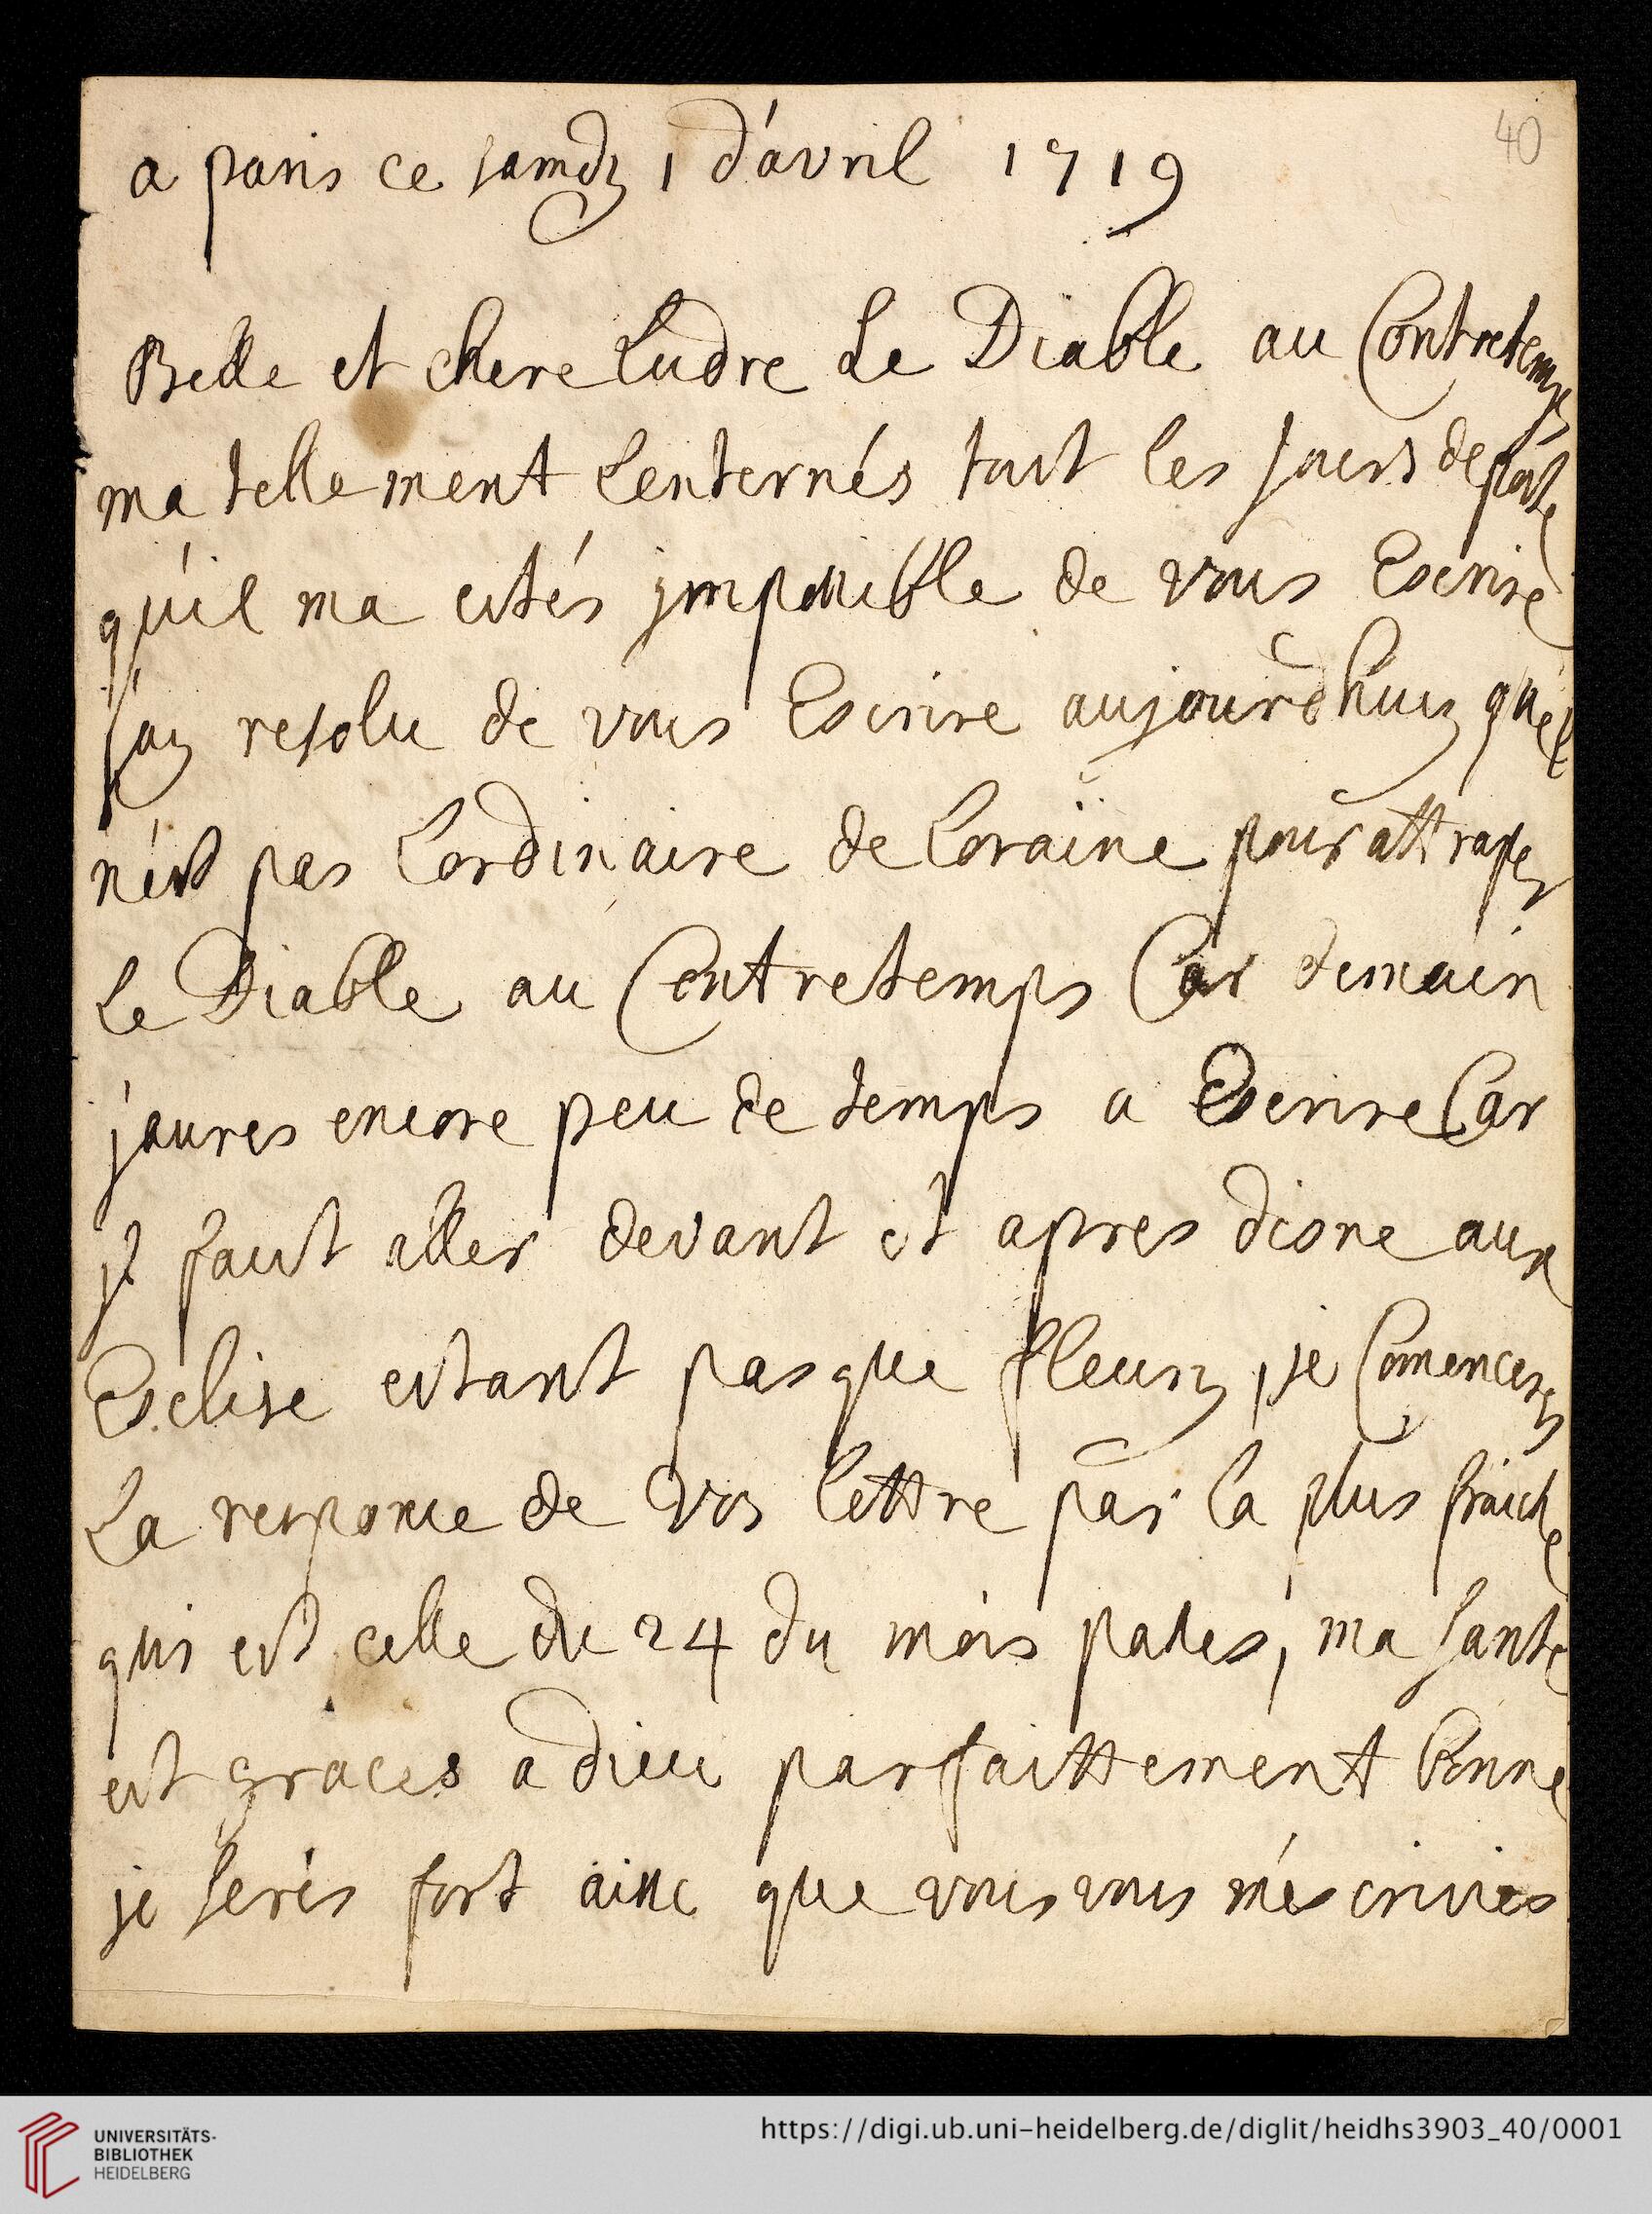 40
a paris ce samdy 1 d'avril 1719
Belle et chere Ludre Le Diable au Contretemps
ma tellement lenternés tout les jours de poste
qu'il ma estés jmpossible de vous Escrire
j'ay resolu de vous Escrire aujourd'huy qu'il
n'est pas l'ordinaire de Loraine pour attraper
Le Diable au Contretemps Car demain
j'aures encore peu de temps a Escrire Car
jl faut aller devant et apres disne aux
Esclise estant pasque fleury, je Comencerey
La response de vos lettre par la plus fraiche
qui est celle du 24 du mois passes, ma santé
est graces a dieu parfaittement bonne
je serés fort aisse que vous vous m'escrivies
UNIVERSITÄTS-
BIBLIOTHEK
HEIDELBERG
https://digi.ub.uni-heidelberg.de/diglit/heidhs3903_40/0001